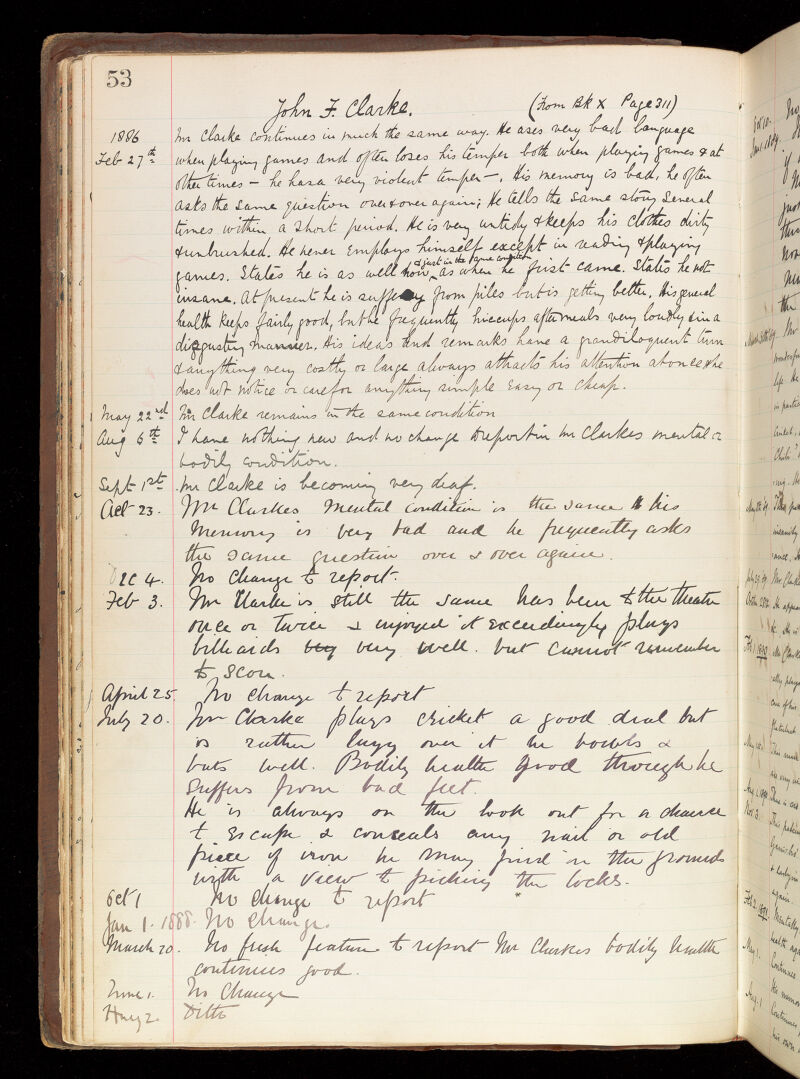 53
John F. Clarke.
(From Bk X Page 311)
1886
Mr Clarke continues in much the same way. He uses very bad language
Feb 27th when playing games and often loses his temper both when playing games & at
other times — he has a very violent temper —. His memory is bad, he often
asks the same question over & over again; He tells the same story several
times within a short period. He is very untidy & keeps his clothes dirty
& unbrushed. He never employs himself except in reading & playing
& just in the same condition
games. States he is as well now as when he first came. States he not
insane. At present he is suffering from piles but is getting better. His general
health keeps fairly good, but he frequently hiccups after meals very loudly & in a
disgusting manner. His ideas and remarks have a grandiloquent turn
& anything very costly or large always attracts his attention at once & he
does not notice or care for anything simple easy or cheap.
May 22nd Mr Clarke remains in the same condition
Aug 6th I have nothing new and no change to report in Mr Clarkes mental or
bodily condition.
Sept 1st. Mr Clarke is becoming very deaf.
Oct 23. Mr Clarkes mental condition is the same his
memory is very bad and he frequently asks
the same question over & over again.
Dec 4. No change to report.
Feb 3. Mr Clarke is still the same has been to the theatre
once or twice & enjoyed it exceedingly plays
billiards very very well. but cannot remember
to score.
April 25. No change to report
July 20. Mr Clarke plays cricket a good deal but
is rather lazy over it he bowls &
bats well. Bodily health good through he
suffers from bad feet.
He is always on the look out for a chance
to escape & conceals any nail or old
piece of iron he may find in the grounds
with a view to picking the locks.
Oct 1 No change to report
Jan 1. 1888. No change.
March 20. No fresh feature to report Mr Clarkes bodily health
continues good.
June 1. No Change
Ditto